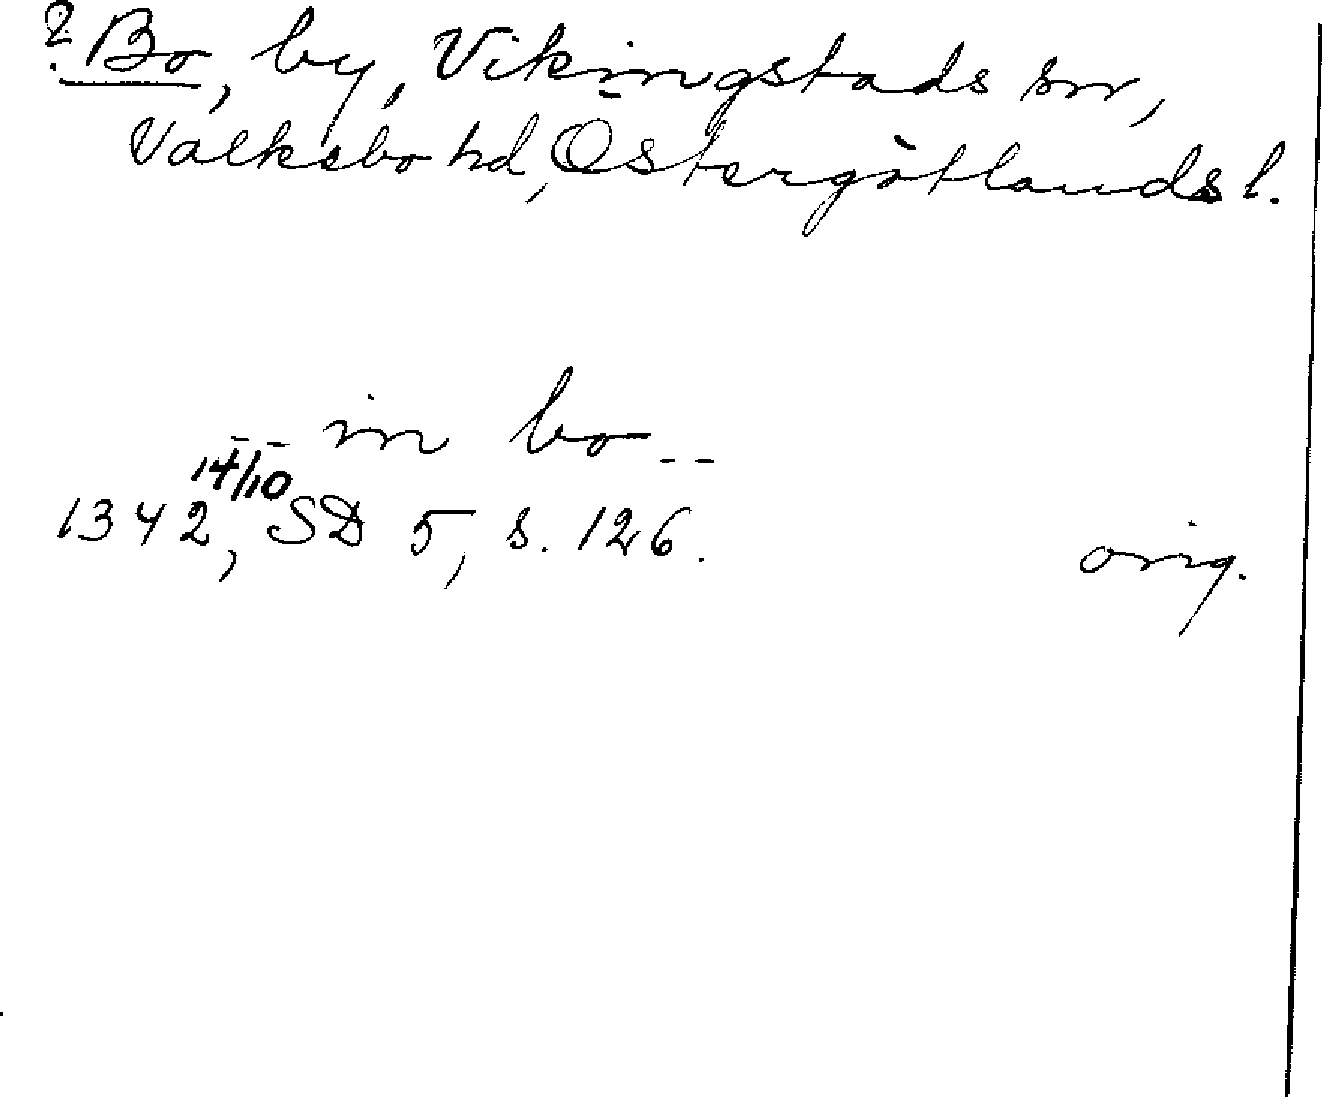 ? Bo, by, Vikingstads sn,
Valkebo hd, Östergötlands l.
-- in bo --
14/10
1342, SD 5, s. 126. orig.